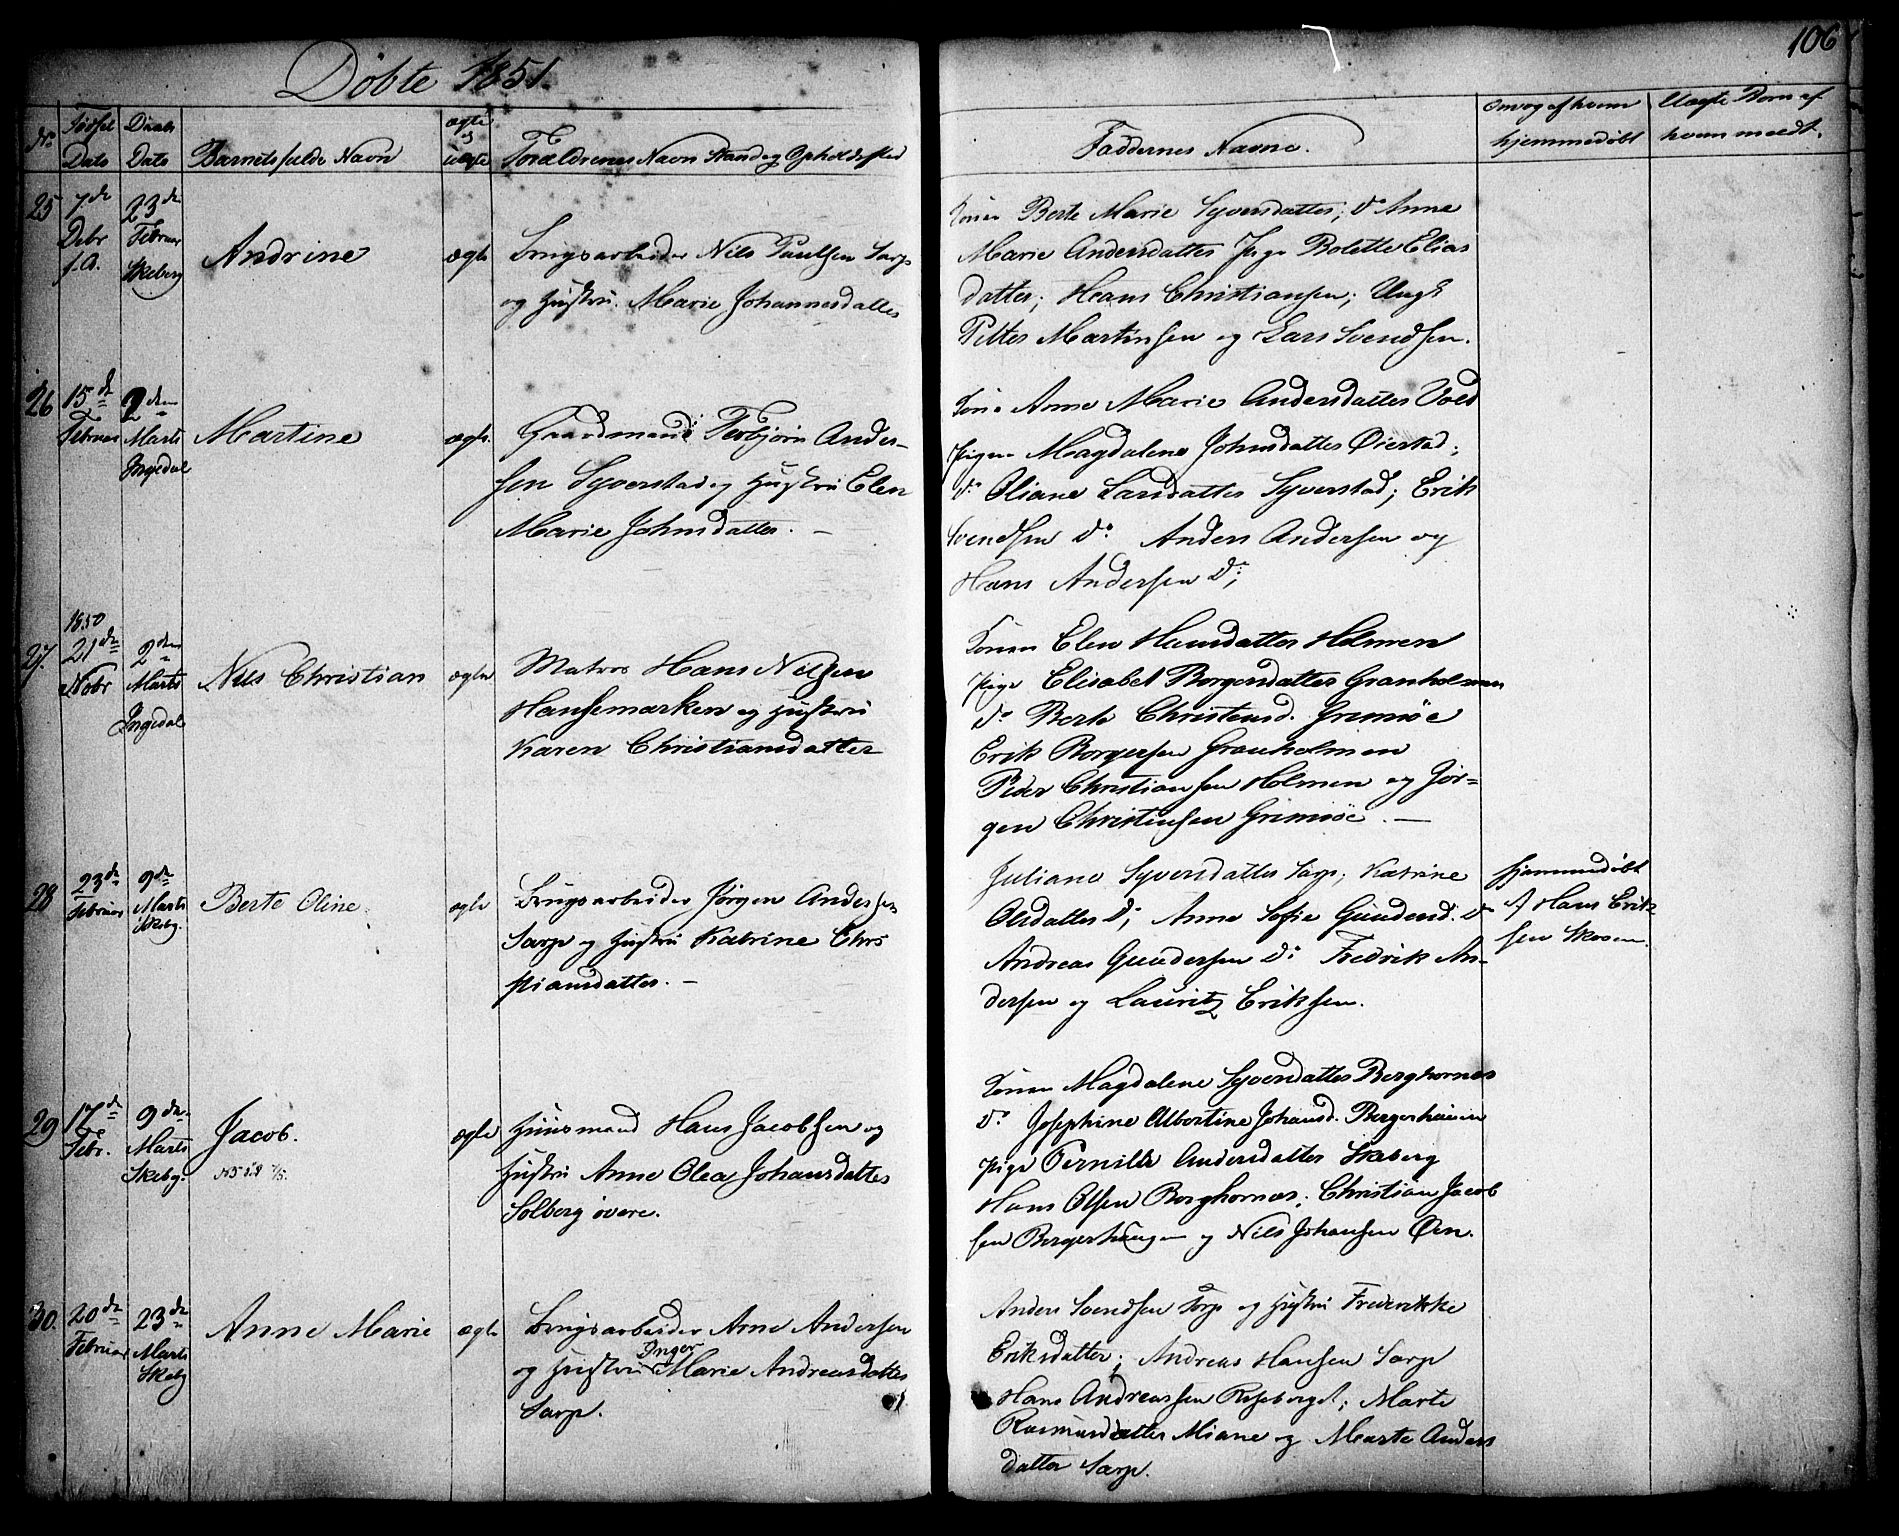 106
Döbte 1851.
No
Födsel
Dato
Daabs
Dato
Barnets fulde Navn
ægte
og
uægte
Forældrenes Navn Stand og Opholdssted
Faddernes Navne.
Om og af hvem
hjemmedøbt
Uægte Born af
hvem meldt.
25
7de
Debr
f. A.
23de
Februar
Skeberg
Andrine
ægte
Brugsarbeider Nils Paulsen Sarp
og Hustru Marie Johannesdatter
Konen Berte Marie Syversdatter; Do Anne
Marie Andersdatter Pige Bolette Elias
datter; Hans Christiansen; Ungk
Petter Martinsen og Lars Svendsen.
26
15de
Februar
2den
Marts
Ingedal
Martine
ægte.
Gaardmand Torbjörn Ander-
sen Syverstad og Hustru Elen
Marie Johnsdatter. –
Kone Anne Marie Andersdatter Vold
Pigen Magdalene Johnsdatter Öiestad;
Do Oliane Larsdatter Syverstad; Erik
Svendsen Do Anders Andersen og
Hans Andersen Do;
27.
1850
21de
Nobr
2den
Marts
Ingedal
Nils Christian
ægte
Matros Hans Nilsen
Hansemarken og Hustru
Karen Christiansdatter
Konen Elen Hansdatter Holmen
Pige Elisabet Borgersdatter Granholmen
Do Berte Christensd. Grimsöe
Erik Borgersen Granholmen
Peder Christiansen Holmen og Jör-
gen Christensen Grimsöe. –
28
23de
Februar
9de
Marts
Skebg.
Berte Oline
ægte
Brugsarbeider Jörgen Andersen
Sarp og Hustru Katrine Chri
stiansdatter. –
Juliane Syversdatter Sarp; Katrine
Olsdatter Do; Anne Sofie Gundersd. Do
Andreas Gundersen Do Fredrik An-
dersen og Lauritz Eriksen.
Hjemmedöbt
af Hans Erik
sen Skoven.
29
17de
Febr.
9de
Marts
Skebg.
Jacob.
ægte
Huusmand Hans Jacobsen og
Hustru Anne Olea Johansdatter
Solberg övere.
Konen Magdalene Syversdatter Berghornes
Do Josephine Albertine Johansd. Bergerhaugen
Pige Pernille Andersdatter Skeberg
Hans Olsen Borghornes; Christian Jacob
sen Bergerhaugen og Nils Johansen Öen.
30.
20de
Februar
23de
Marts
Skebg
Anne Marie
ægte
Brugsarbeider Arne Andersen
og Hustru Inger Marie Andreasdatter
Sarp.
Anders Svendsen Torp og Hustru Frederikke
Eriksdatter; Andreas Hansen Sarp
Hans Andreassen Roseberget; Marte
Rasmusdatter Miane og Marte Anders
datter Sarp.